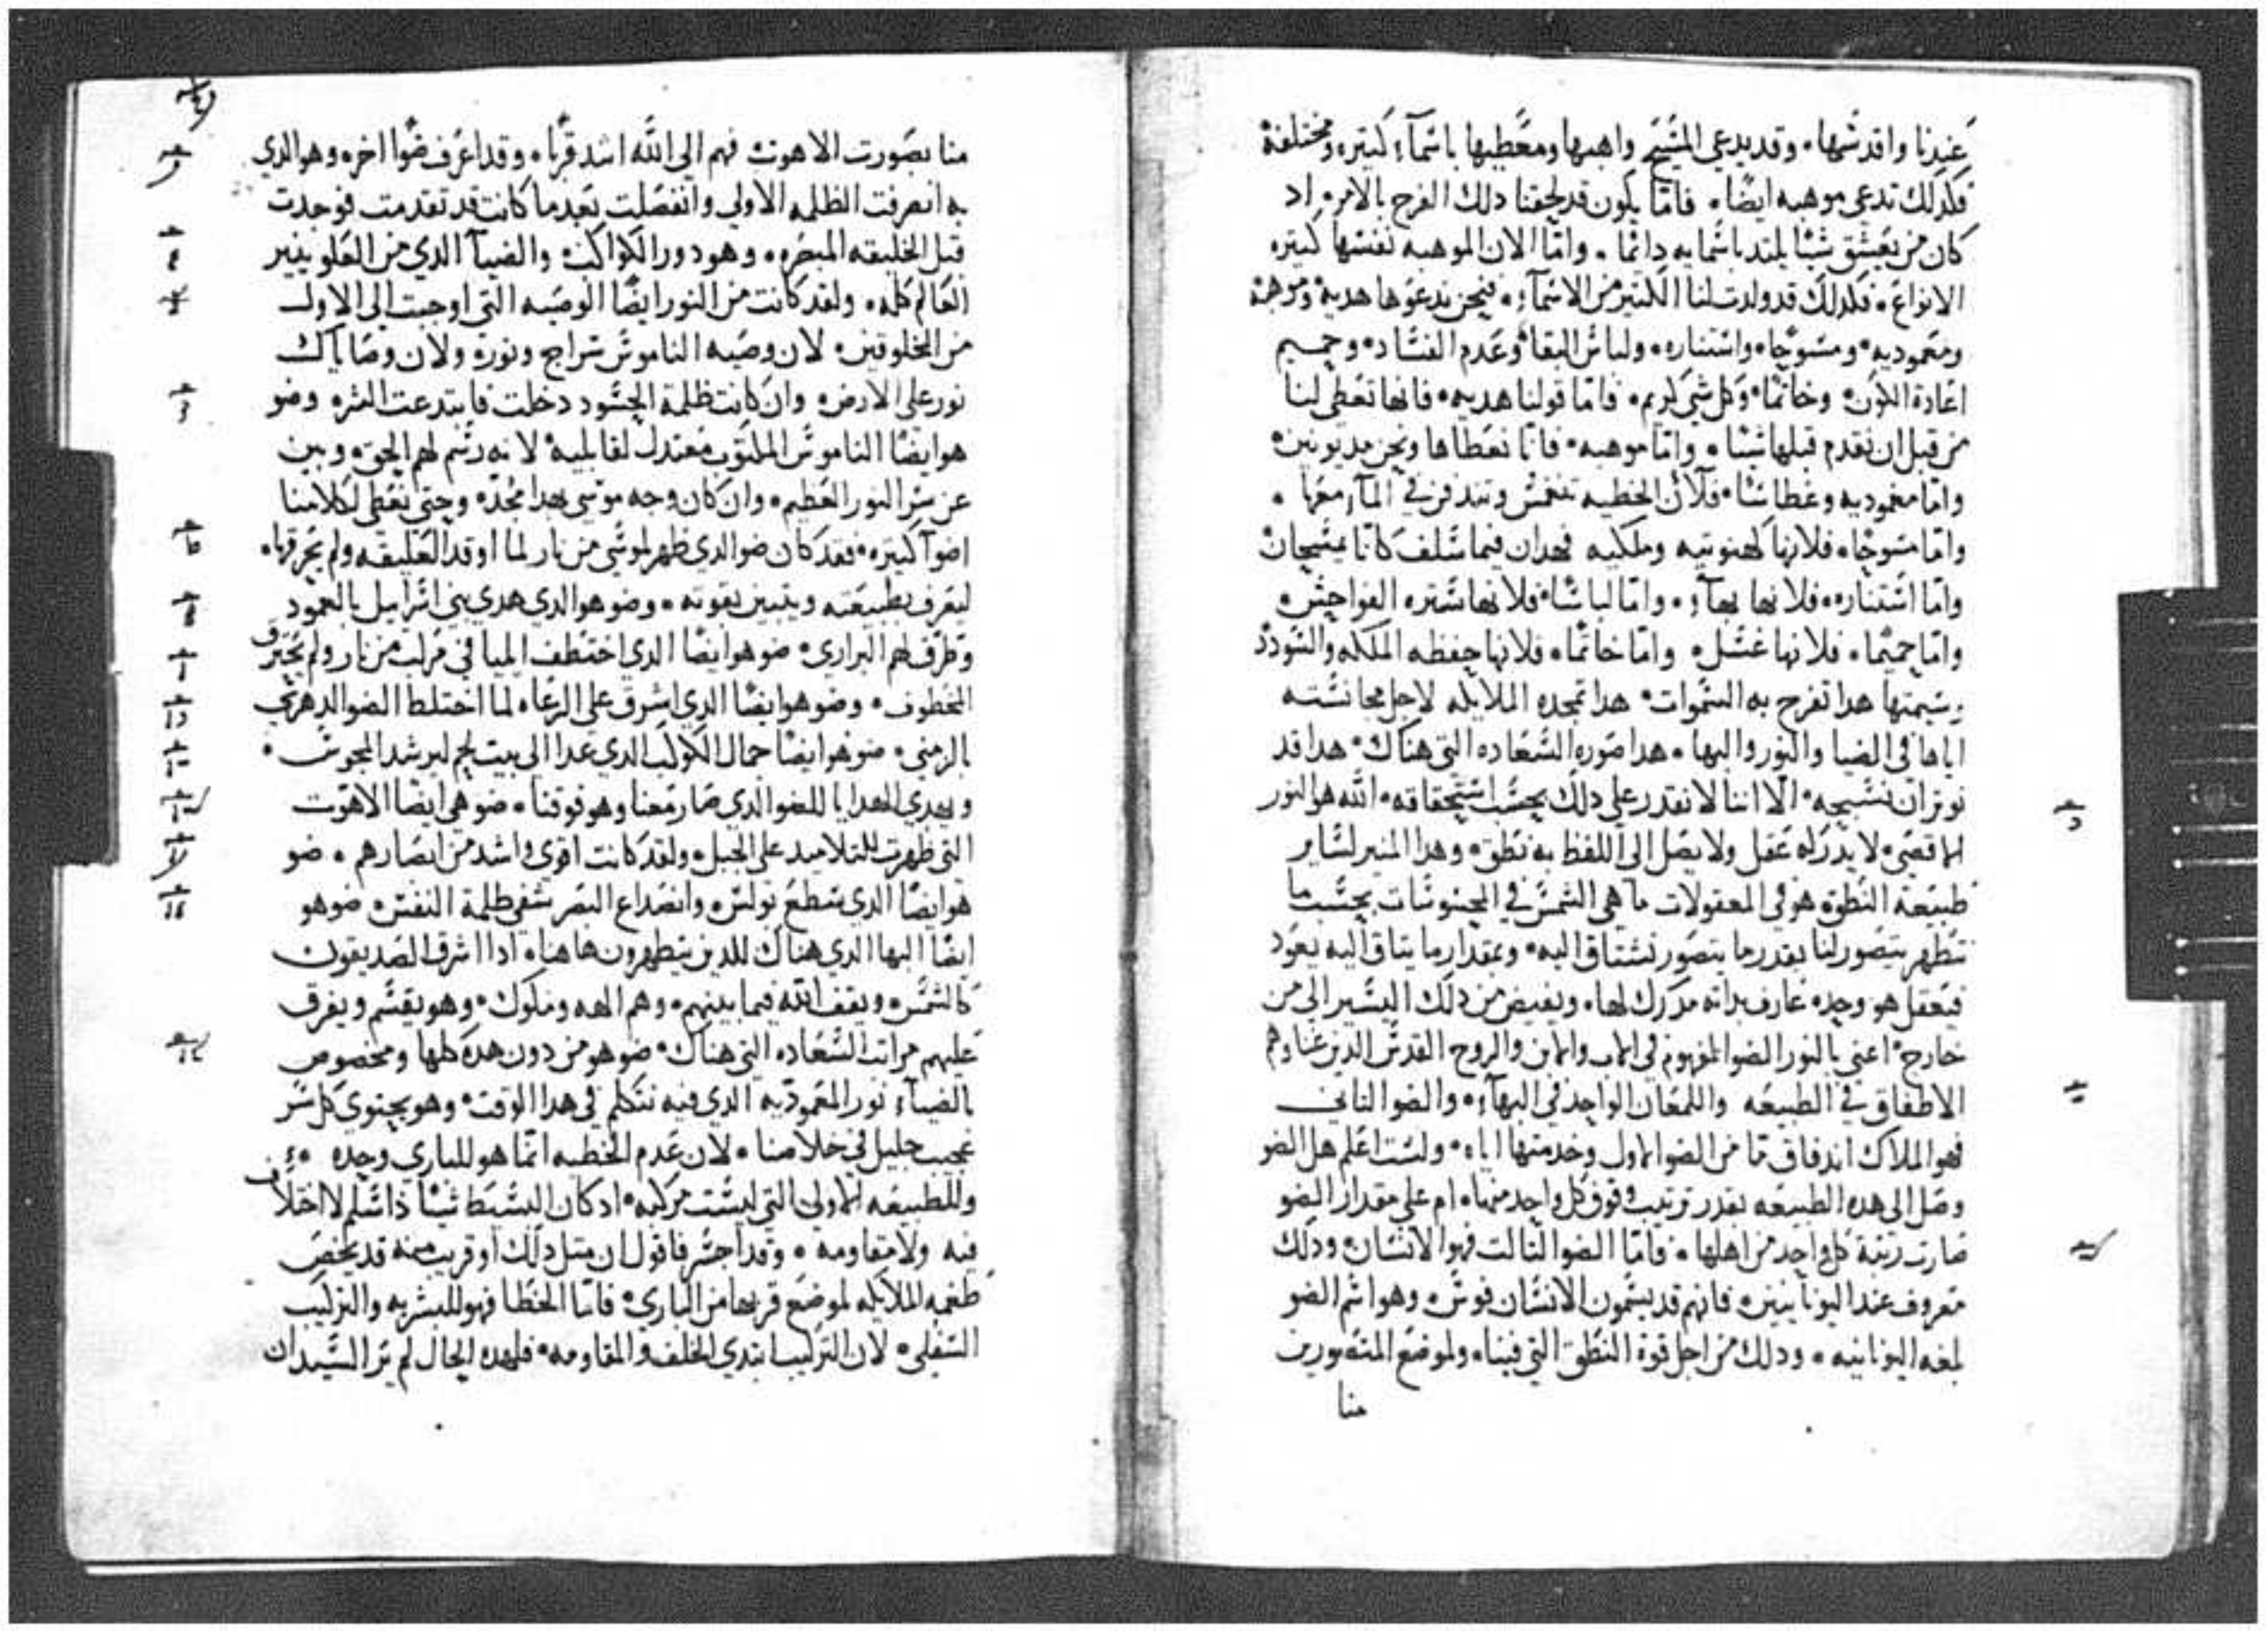 عندنا واقدسها ۰ وقد يدعي المسيح واهبها ومعطيها باسمآء كتيره ومختلفة
فكدلك تدعي موهبه ايضًا ۰ فامّا يكون قد لحقنا دلك الفرح بالامر ۰ اد
كان من يعشق شيئًا يلتد باسمايه دايمًا ۰ وامّا الان الموهبه نفسها كتيره
الانواع ۰ فكدلك قد ولدت لنا الكتير من الاسمآء ۰ فنحن ندعوها هدية وموهبة
ومعموديه ۰ ومسوحًا ۰ واستناره ۰ ولباس البقا وعدم الفساد ۰ وحميم
اعادة الكون ۰ وخاتمًا ۰ وكل شي كريم ۰ فامّا قولنا هديه ۰ فانها تعطي لنا
من قبل ان نقدم قبلها شيئًا ۰ وامّا موهبه ۰ فانّا نعطاها ونحن مديونين ۰
وامّا معموديه وغطاسًا ۰ فلان الخطيه تنغمس وتندفن في المآء معها ۰
وامّا مسوحًا ۰ فلانها كهنوتيه وملكيه فهدان فيما سلف كانا يمسحان
وامّا استناره ۰ فلانها بهآء ۰ وامّا لباسًا ۰ فلانها ستره الفواحش ۰
وامّا حميمًا ۰ فلانها غسل ۰ وامّا خاتمًا ۰ فلانها حفظه الملكه والسودد
وسيمتها هدا تفرح به السموات ۰ هدا تمجده الملايكه لاجل مجانسته
اياها في الضيا والنور والبها ۰ هدا صوره السعاده التي هناك ۰ هدا قد
نوتر ان نسبحه ۰ الّا اننا لا نقدر علي دلك بحسب استحقاقه ۰ الله هو النور
الاقصى ۰ لا يدركه عقل ولا يصل الى اللفظ به نطق ۰ وهدا المنير لساير
طبيعة النطق ۰ هو في المعقولات ما هي الشمس في المحسوسات بحسب ما
نتطهر يتصور لنا بقدر ما يتصور نشتاق اليه ۰ وبمقدار ما يتاق اليه يعود
فيعقل هو وحده عارف بداته مدرك لها ۰ ويفيض من دلك اليسير الى من
خارج ۰ اعني بالنور الضو المفهوم في الاب والابن والروح القدس الدين غناوهم
الاطفاق في الطبيعه واللمعان الواحد في البهآء ۰ والضو التاني
فهو الملاك اندفاق ما من الضو الاول وخدمتها اياه ۰ ولست اعلم هل الضو
وصل الى هده الطبيعه بقدر ترتيب وقوف كل واحد منها ۰ ام على مقدار الضو
صارت رتبة كل واحد من اهلها ۰ فامّا الضو التالت فهو الانسان ۰ ودلك
معروف عند اليونانيين ۰ فانهم قد يسمون الانسان فوس ۰ وهو اسم الضو
بلغه اليونانيه ۰ ودلك من اجل قوة النطق التي فينا ۰ ولموضع المتصورين
منا
منا بصورت الاهوت فهم الى الله اشد قربًا ۰ وقد اعرف ضوًا اخر ۰ وهو الدي
به انصرفت الظلمه الاولى وانفصلت بعد ما كانت قد تقدمت فوجدت
قبل الخليقه المبصره ۰ وهو دور الكواكب ۰ والضيآ الدي من العلو ينير
العالم كله ۰ ولقد كانت من النور ايضًا الوصيه التي اوحيت الى الاول
من المخلوقين ۰ لان وصيه الناموس سراج ونوره ولان وصاياك
نور على الارض ۰ وان كانت ظلمة الحسود دخلت فابتدعت الشره وضو
هو ايضًا الناموس المكتوب معتدل لقابليه ۰ لانه رسم لهم الحق ۰ وبين
عن سر النور العظيم ۰ وان كان وجه موسى بهدا مُجد ۰ وحتى نعطى لكلامنا
اضوآ كتيره ۰ فقد كان ضو الدي ظهر لموسي من نار لما اوقد العليقه ولم يحرقها ۰
ليعرف بطبيعته ويتبين بقوته ۰ وضو هو الدي هدى بني اسراييل بالعمود
وطرف لهم البراري ۰ ضو هو ايضًا الدي اختطف اليا في مركب من نار ولم يحترق
المخطوف ۰ وضو هو ايضًا الدي اشرق على الرعاه لما اختلط الضو الدهري
بالزمني ۰ ضو هو ايضًا جمال الكوكب الدي غدا الى بيت لحم ليرشد المجوس ۰
ويهدي الهدايا للضو الدي صار معنا وهو فوقنا ۰ ضو هي ايضًا الاهوت
التي ظهرت للتلاميد على الجبل ۰ ولقد كانت اقوى واشد من ابصارهم ۰ ضو
هو ايضًا الدي سطع بولس ۰ وانصداع البصر شفى ظلمة النفس ۰ ضو هو
ايضًا البها الدي هناك للدين يتطهرون هاهنا ۰ ادا اشرق الصديقون
كالشمس ۰ ويقف الله فيما بينهم ۰ وهم الهه وملوك ۰ وهو يقسم ويفرق
عليهم مراتب السعاده التي هناك ۰ ضو هو من دون هده كلها ومخصوص
بالضيآء نور المعموديه الدي فيه نتكلم في هدا الوقت ۰ وهو يحتوى كل سر
عجيب جليل في خلاصنا ۰ لان عدم الخطيه انما هو للباري وحده ۰
وللطبيعه الاولى التي ليست مركبه ۰ اد كان البسيط شيئًا ذا سلم لا اختلاف
فيه ولا مقاومه ۰ وقد اجسر فاقول ان متل دلك او قريب منه قد يخص
طغمه الملايكه لموضع قربها من الباري ۰ فامّا الخطا فهو للبشريه والتركيب
السفلي ۰ لان التركيب ابتدى الخلف والمقاومه ۰ فلهده الحال لم ير السيد ان